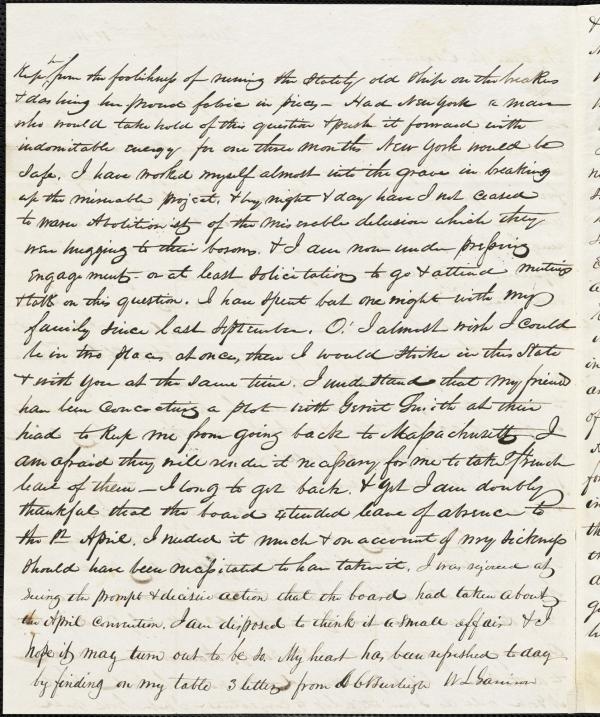 Kept from the foolishness of running the stately old ship on the breakers
& dashing her proud fabric in pieces – Had New York a man
who would take hold of this question & push it forward with
indomitable energy for one three months New York would be
safe. I have worked myself almost into the grave in breaking
up the miserable project, & by night & day have I not ceased
to warn Abolitionists of the miserable delusion which they
were hugging to their bosoms. & I am now under pressing
engagements or at least solicitations to go & attend meetings
& talk on this question. I have spent but one night with my
family since last September. O! I almost wish I could
be in two places at once, then I would strike in this State
& with you at the same time. I understand that my friends
have been concocting a plot with Gerrit Smith at their
head to keep me from going back to Massachusetts I
am afraid they will render it necessary for me to take French
leave of them – I long to get back. & yet I am doubly
thankful that the board extended leave of absence to
the 1st April. I needed it much & on account of my sickness
should have been necessitated to have taken it. I was rejoiced at
seeing the prompt & decisive action that the board had taken about
the April Convention. I am disposed to think it a small affair & I
hope it may turn out to be so. My heart has been refreshed today
by finding on my table 3 letters from C C Burleigh W L Garrison